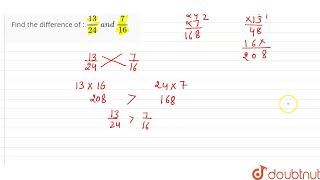 Find the difference of : 13/24 and 7/16
13/24 7/16
13 × 16 24 × 7
208 > 168
13/24 > 7/16
24 2
× 7
168
×13 1
48
16×
208
doubtnut